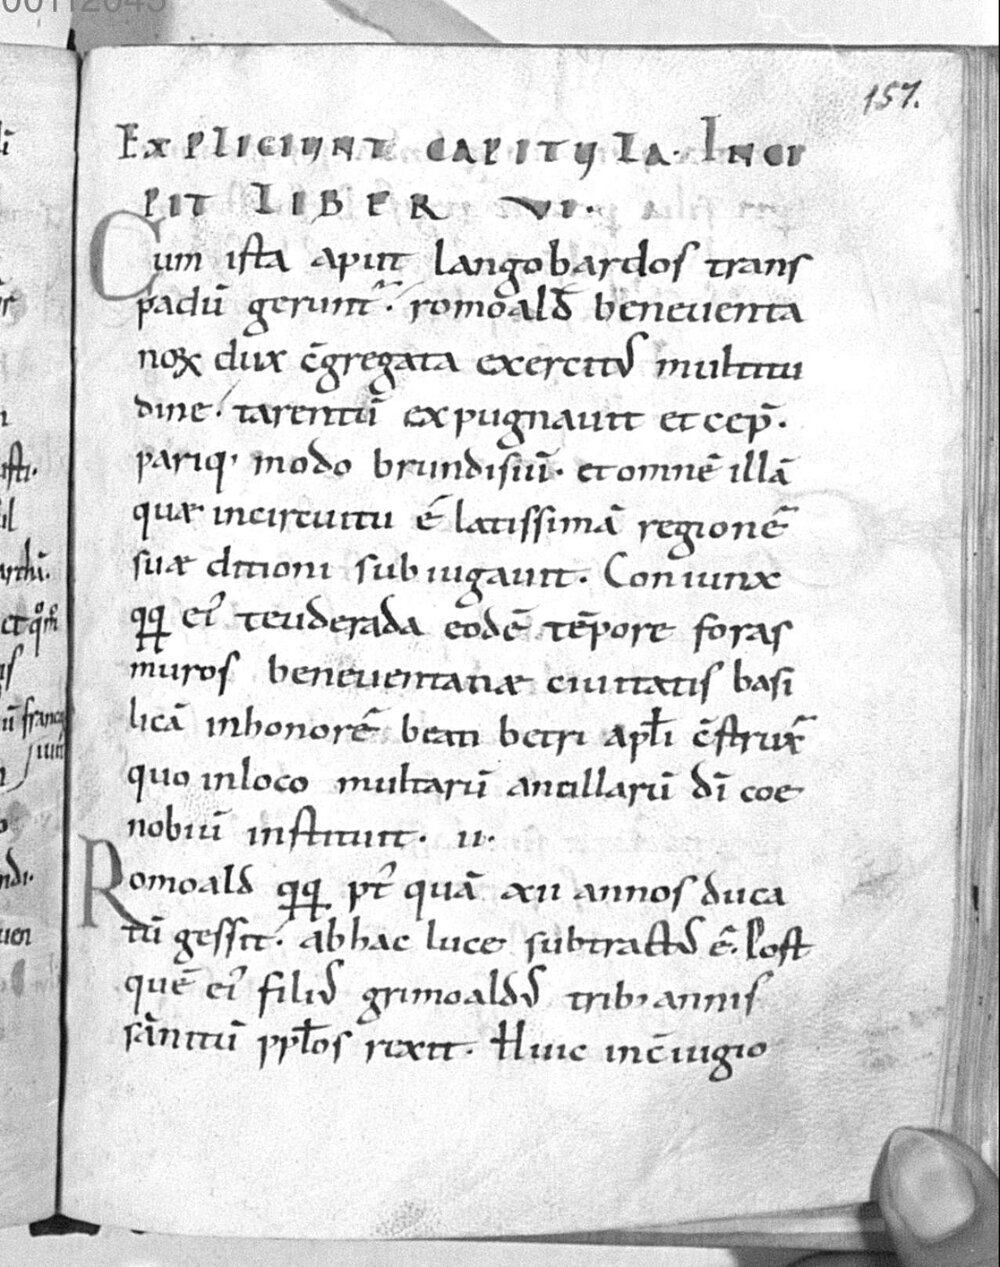 157.
EXPLICIUNT CAPITULA. INCI
PIT LIBER VI.
Cum ista aput langobardos trans
padū gerunt̄. romoald̄ beneuenta
noꝝ dux c̄gregata exercitꝰ multitu
dine. tarentū expugnauit et cep̄.
pariq; modo brundisiū. et omnē illā
quæ incircuitu ē latissimā regionē
suæ ditioni subiugauit. Coniunx
qq̄ ei᾽ teuderada eodē tēpore foras
muros beneuentanæ ciuitatis basi
licā inhonorē beati betri apłi c̄strux̄
quo inloco multarū ancillarū dī coe
nobiū instituit. II.
Romoald qq̄ pt᾽ quā xvi annos duca
tū gessit. ab hac luce subtractꝰ ē. Post
quē ei᾽ filiꝰ grimoaldꝰ trib; annis
sānitū pplos rexit. Huic inc̄iugio